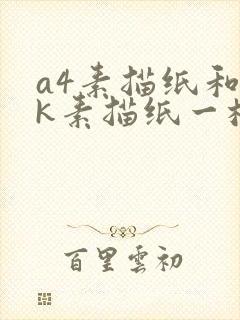 a4素描纸和
k素描纸一
百里雲初